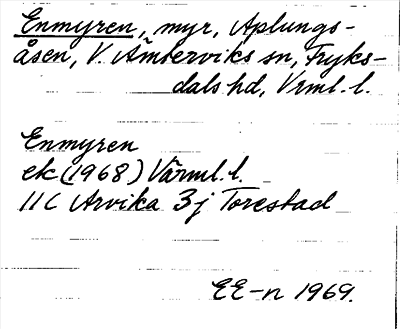 Enmyren, myr, Aplungs-
åsen, V. Ämterviks sn, Fryks-
dals hd, Vrml. l.
Enmyren
ek (1968) Värml. l.
11C Arvika 3j Torestad
EE-n 1969.